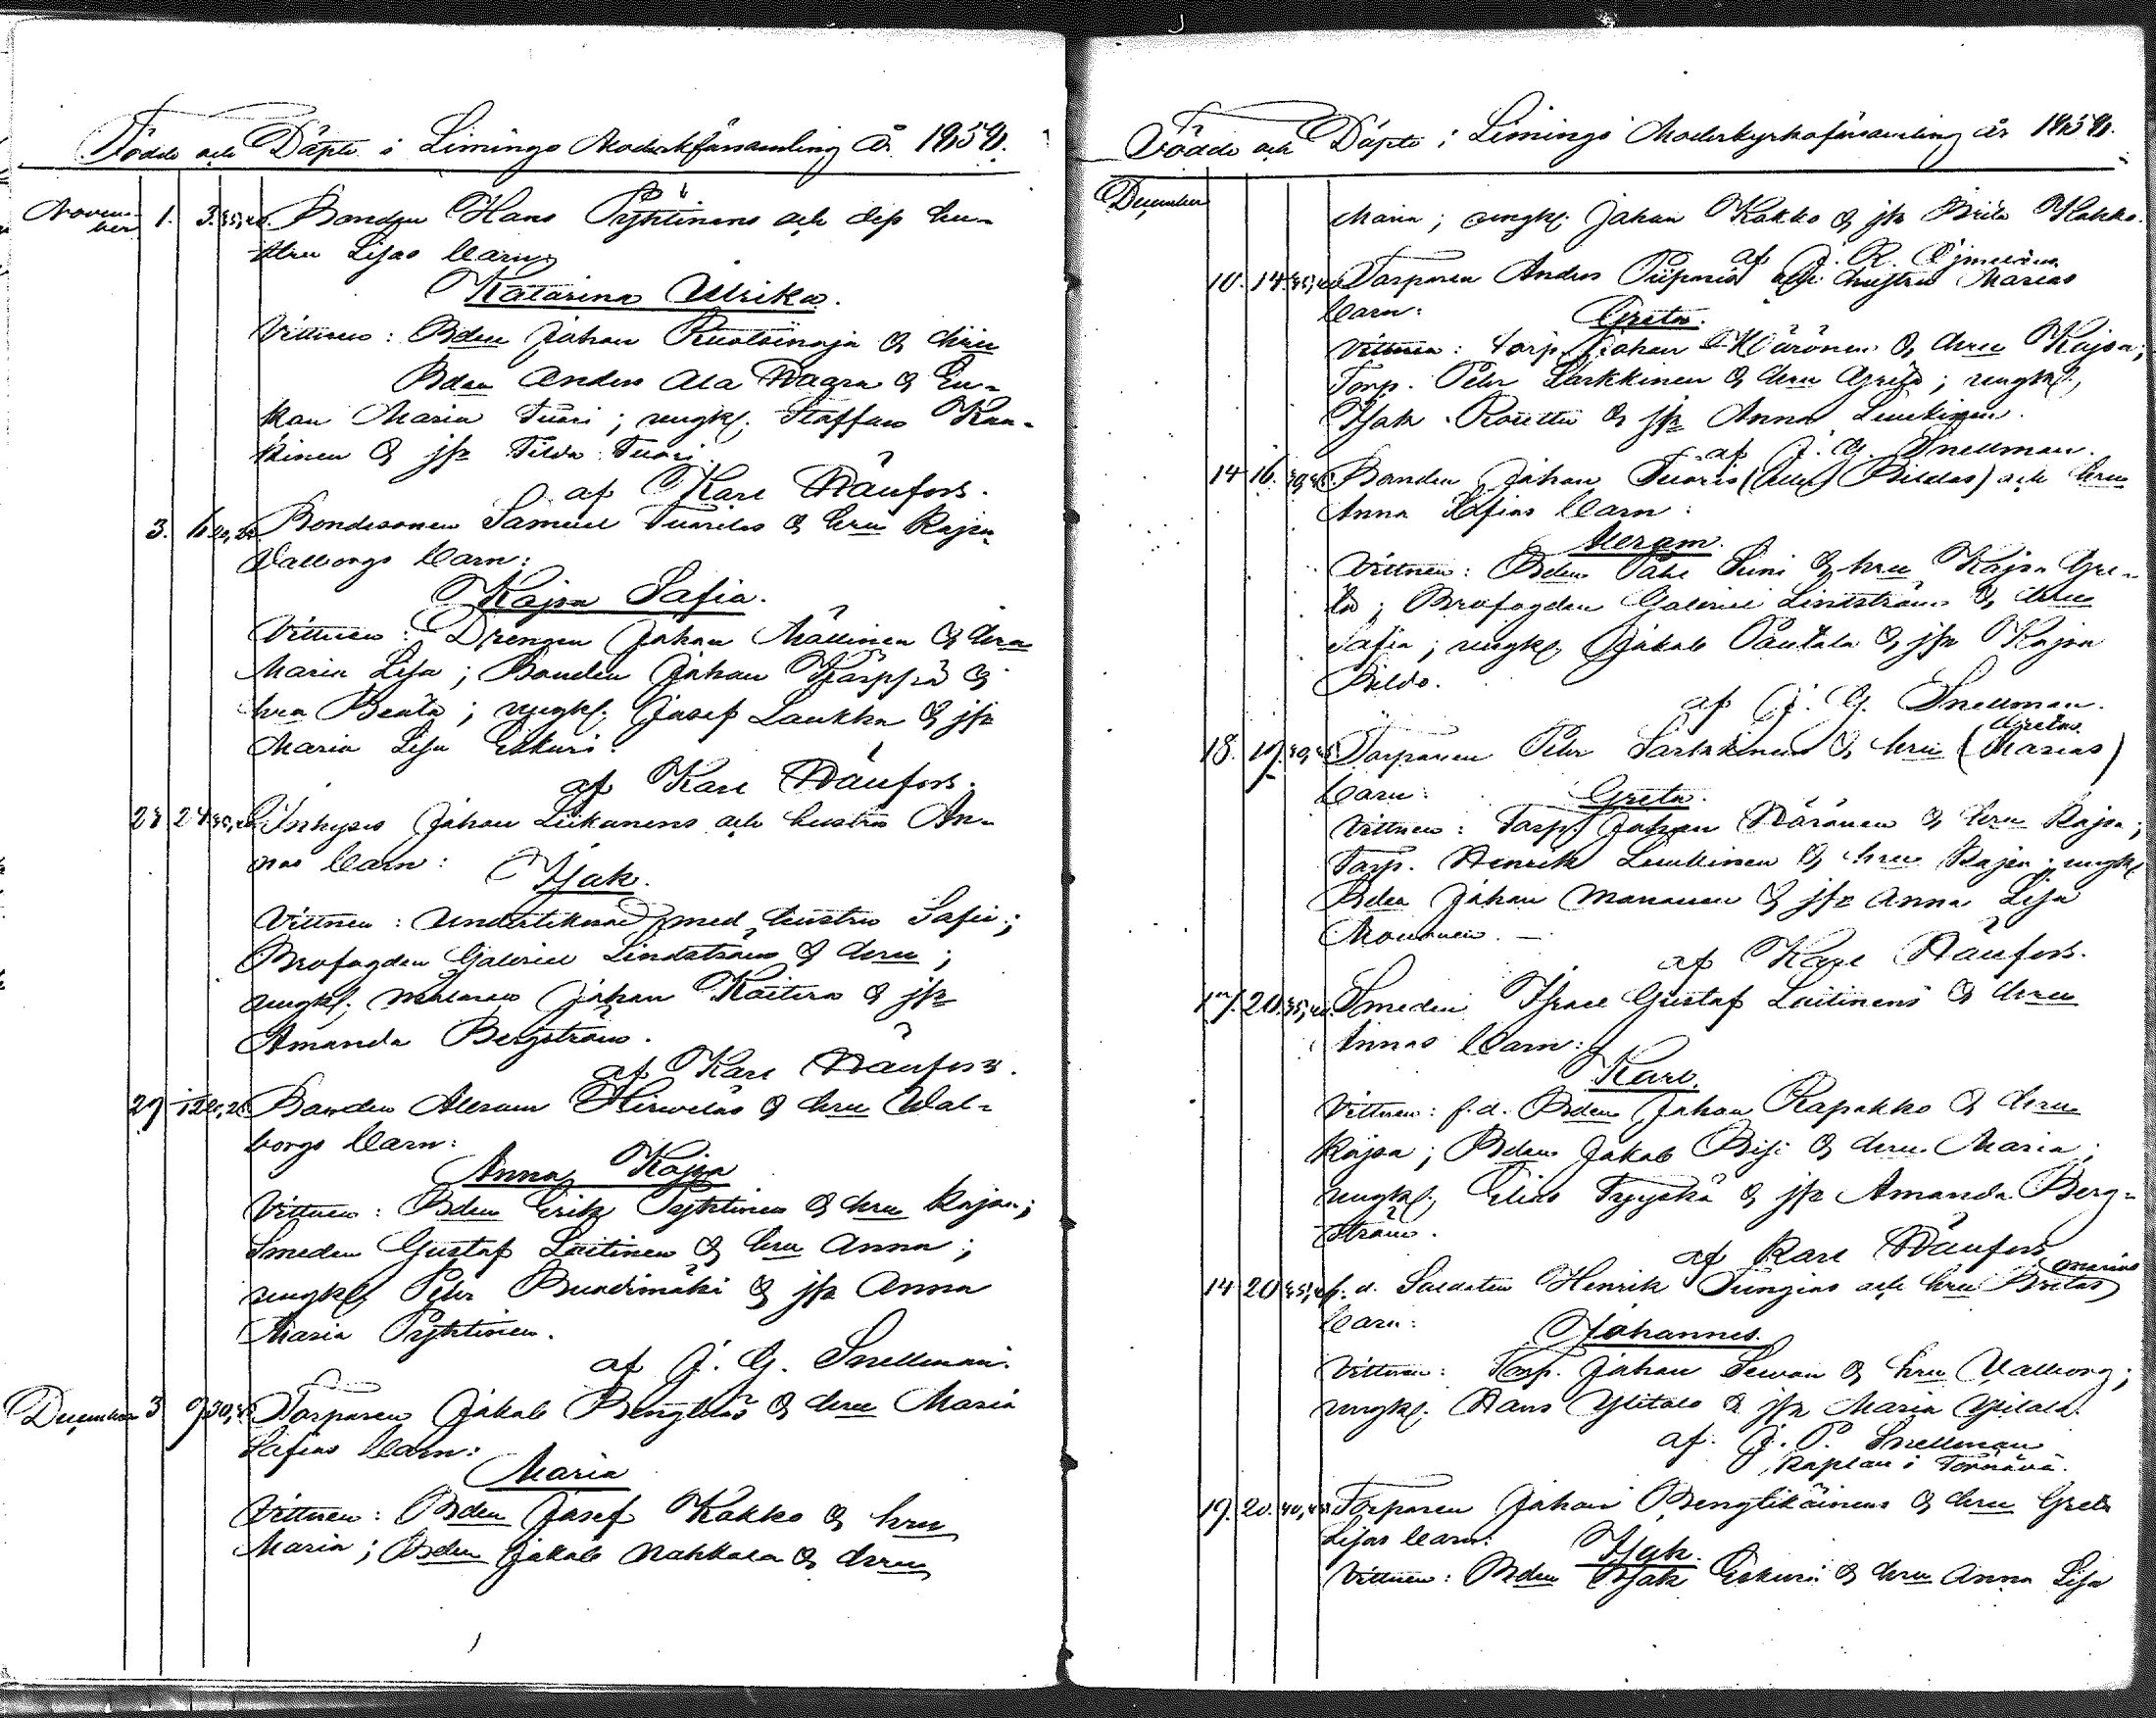 Födde och Däpte i Limingo Moderkförsamling År 1859.
November 1. 3. 35,40. Bonden Hans Pyhtinens och dess hu-
strus Lisas barn;
Katarina Ulrika.
Vittnen: Bden Johan Ruotsinoja & hru
Bden Anders Ala Wagra & En-
kan Maria Tuuri; ungkl. Staffan Kan-
kinen & jfr Tilda Tuori.
af Karl Wänfors.
3. 6. 20,25 Bondesonen Samuel Tuorilas & hru Kajsa
Valborgs barn:
Kajsa Safia.
Vittnen: Drengen Johan Mällinen & hru
Maria Lisa; Bonden Johan Kärppä &
hru Beata; ungkl. Josef Laukka & jfr
Maria Lisa Eskuri.
af Karl Wänfors.
23 24 Inhyses Johan Liikanens och hustru An-
nas barn:
Isak.
Vittnen: med hustru Safia;
Brofogden Gabriel Lindström & hru;
ungkl. målaren Johan Kaitera & jfr
Amanda Bergström.
af Karl Wänfors.
29 Bonden Abram Hirvelas & hru Wal-
borgs barn:
Anna Kajsa
Vittnen: Bden Erik Pyhtinen & hru Kajsa;
Smeden Gustaf Laitinen & hru Anna;
ungkl. Petr & jfr Anna
Maria Pyhtinen.
af J. G. Snellman.
December 3 9 30,35 Torparen Jakob & hru Maria
Safias barn:
Maria
Vittnen: Bden Josef Kakko & hru
Maria; Bden Jakob Nahkala & hru
Födde och Däpte i Limingo Moderkyrkoförsamling År 1859.
December
Maria; ungkl. Johan Kakko & jfr Brita Kakko.
af J. R.
10. 14. 35,40 Torparen Anders Piiponis och hustrus Marias
barn: Greta.
Vittnen: torp. Johan Wäronen & hru Kajsa;
Torp. Petr Sarkkinen & hru Greta; ungkl.
Isak & jfr Anna Luukinen.
af J. G. Snellman.
14 16. Bonden Johan Tuoris (eller Pildas) och hru
Anna Safias barn:
Abram.
Vittnen: Bden Påhl & hru Kajsa Gre-
ta; Brofogden Gabriel Lindström & hru
Safia; ungkl. Jakob & jfr Kajsa
Pilda.
af J. G. Snellman.
Gretas
18. 19. Torparen Petr Sarkkinens & hru (Marias)
barn: Greta.
Vittnen: Torp. Johan Wäronen & hru Kajsa;
Torp. Henrik Luukinen & hru Kajsa; ungkl.
Bden Johan & jfr Anna Lisa
af Karl Wänfors.
17. 20. 35,40. Smeden Israel Gustaf Laitinens & hru
Annas barn:
Karl.
Vittnen: f.d. Bden Johan Rapakko & hru
Kajsa; Bden Jakob & hru Maria;
ungkl. Elias Tyyskä & jfr Amanda Berg-
ström.
af Karl Wänfors.
Marias
14 20 f.d. Soldaten Henrik Pungins och hru Britas
barn: Johannes.
Vittnen: Torp. Johan & hru Valborg;
ungkl. Hans Ylitalo & jfr Maria Ylitalo.
af. J. P. Snellman
Kaplan i Tornävä.
19. 20. Torparen Johan Pengtikäinens & hru Greta
Lisas barn: Isak.
Vittnen: Bden Isak Eskuri & hru Anna Lisa